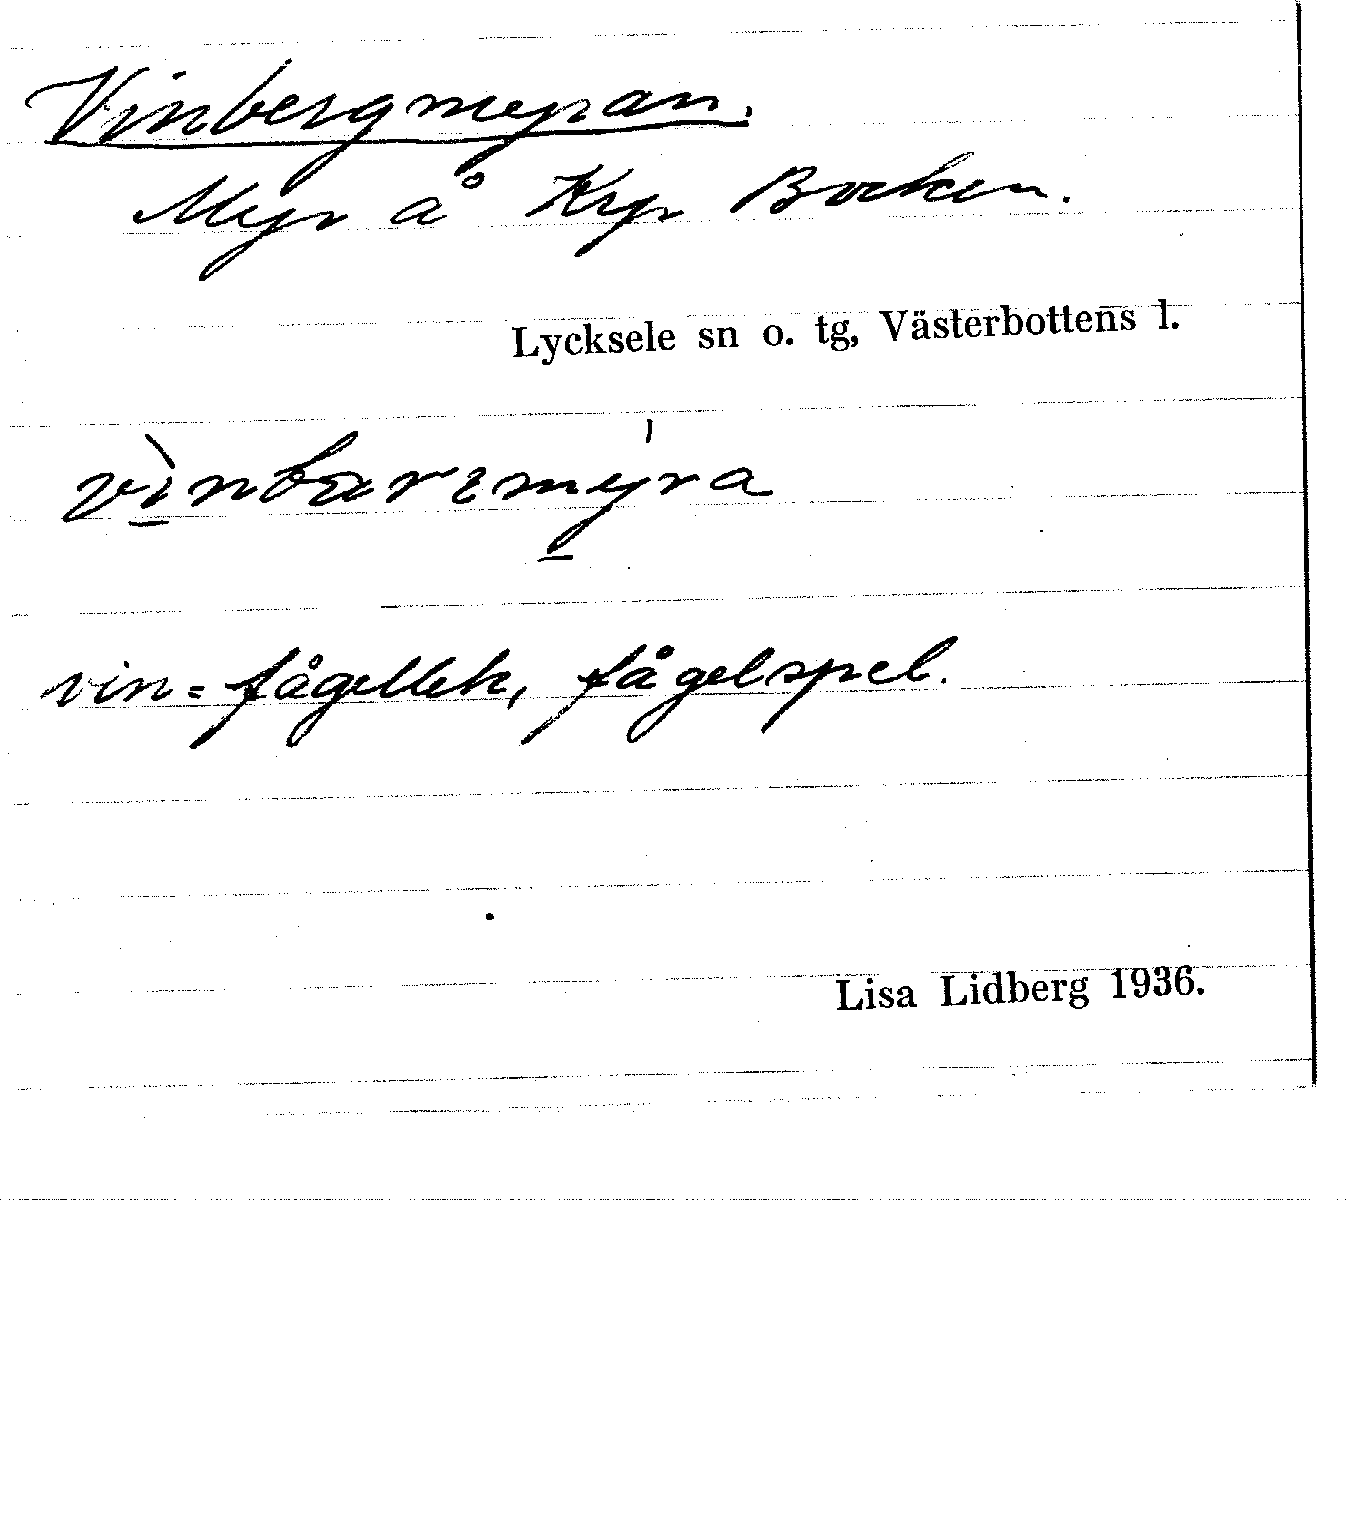 Vinbergmyran.
Myr å Krp Bocken.
Lycksele sn o. tg, Västerbottens l.
vin = fågellek, fågelspel.
Lisa Lidberg 1936.